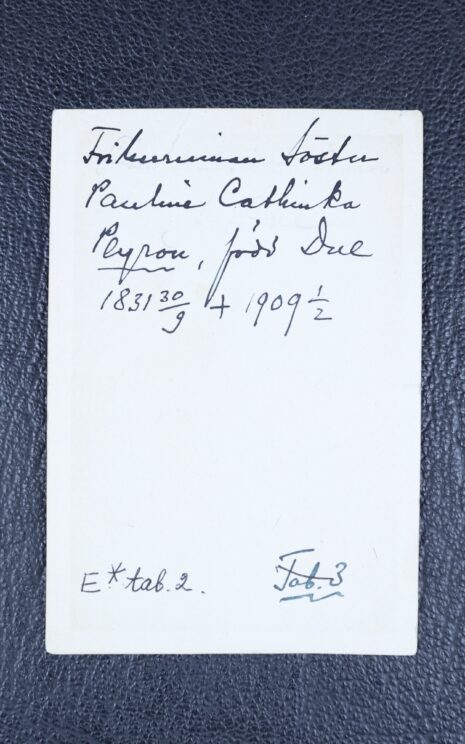 Friherrinnan Söster
Pauline Cathinka
Peyron, född Due
1831 30/9 + 1909 1/2
E* tab. 2.
Tab. 3